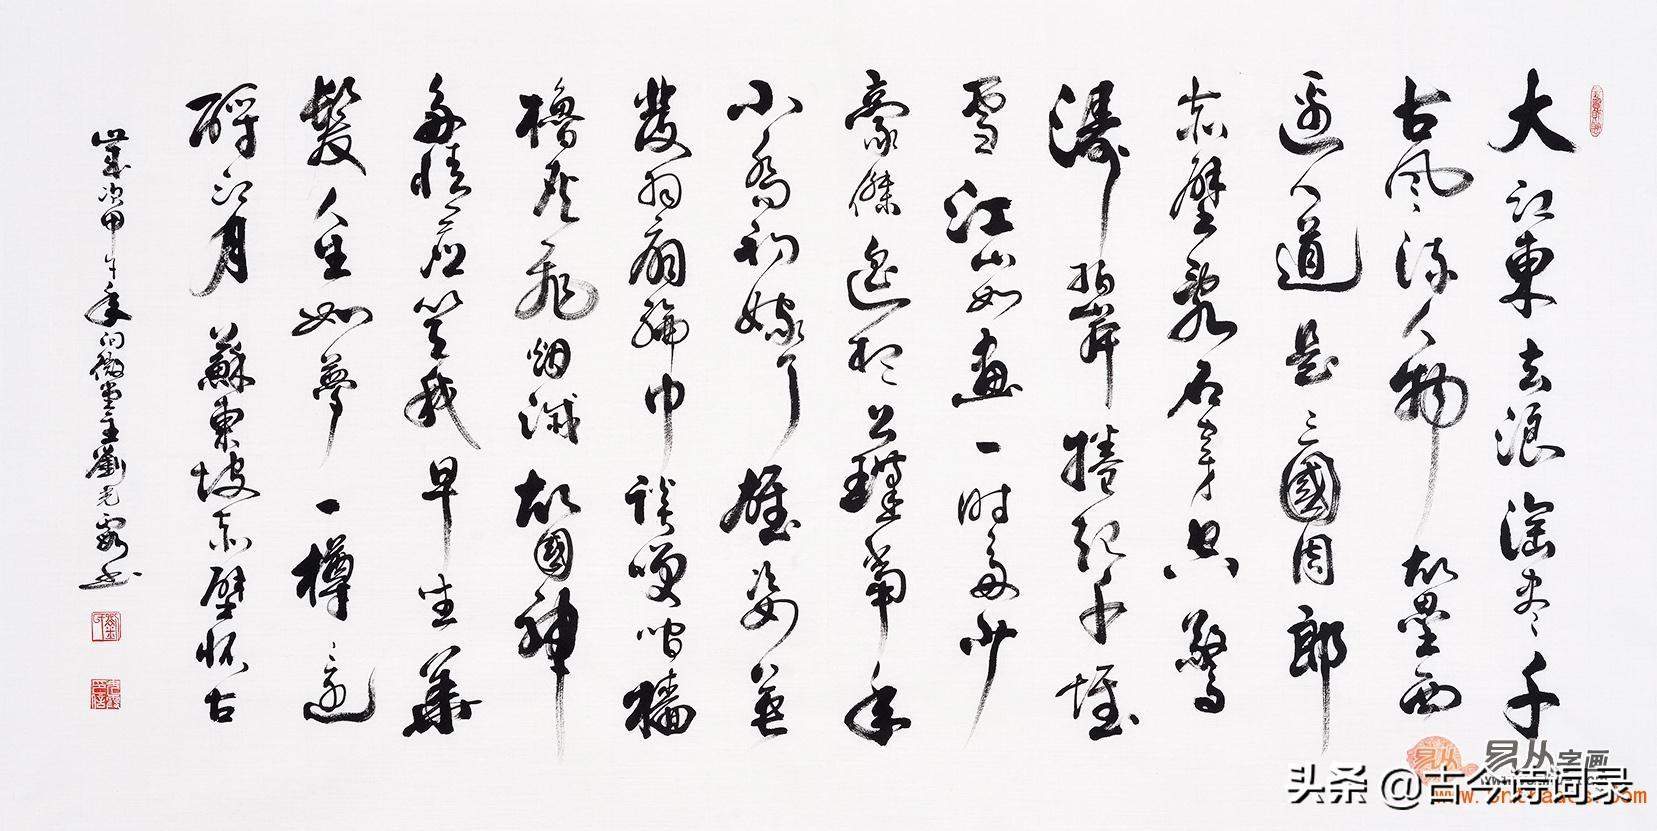 大江東去浪淘盡千
古風流人物故壘西
邊人道是三國周郎
赤壁亂石穿空驚
濤拍岸捲起千堆
雪江山如畫一時多少
豪傑遙想公瑾當年
小喬初嫁了雄姿英
發羽扇綸巾談笑間檣
櫓灰飛烟滅故國神
多情應笑我早生華
髮人生如夢一樽還
酹江月 蘇東坡赤壁懷古
歲次甲午年 微堂主劉光霞书
易从字画
头条 @古今诗词录